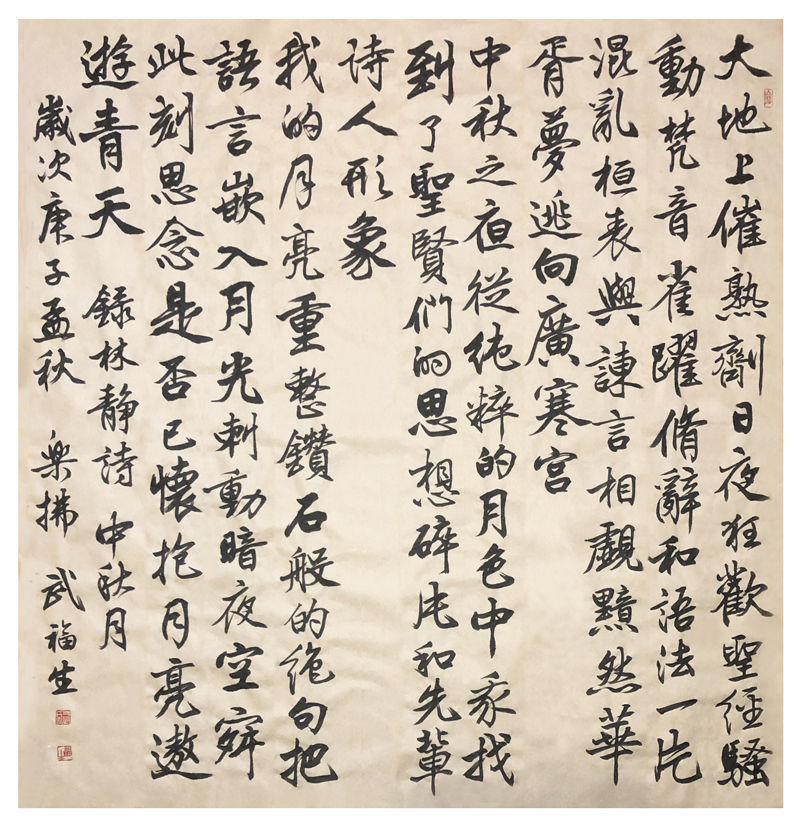 大地上催熟劑日夜狂歡聖經騷
動梵音雀躍脩辭和語法一片
混亂桓表與諫言相覷黯然華
胥夢逃向廣寒宮
中秋之夜從純粹的月色中我找
到了聖賢們的思想碎片和先輩
诗人形象
我的月亮重整鑽石般的絶句把
語言嵌入月光刺動暗夜空穽
此刻思念是否已懷抱月亮遨
遊青天 録林静詩 中秋月
歲次庚子孟秋 樂拂 武福生